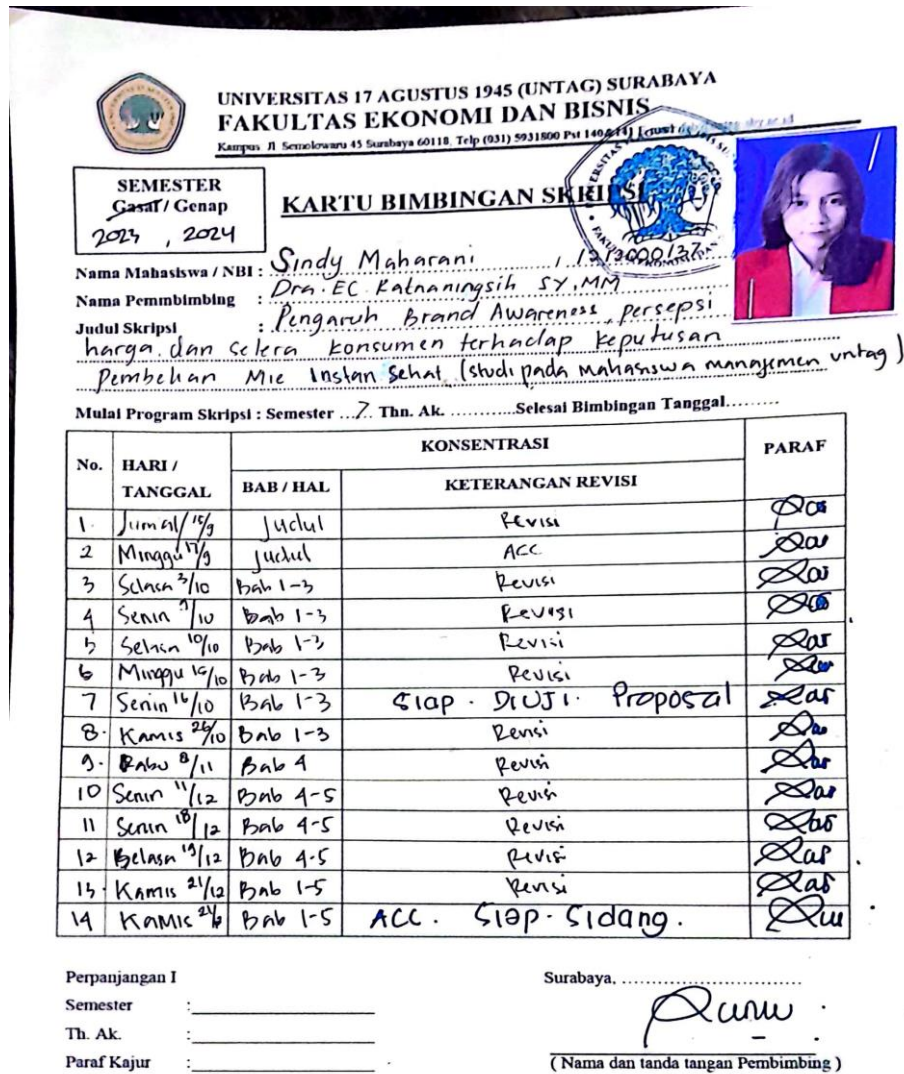 UNIVERSITAS 17 AGUSTUS 1945 (UNTAG) SURABAYA
FAKULTAS EKONOMI DAN BISNIS
Kampus Jl Semolowaru 45 Surabaya 60118, Telp (031) 5931800 Pst 140
SEMESTER
Gasal / Genap
2023 , 2024
KARTU BIMBINGAN SKRIPSI
Nama Mahasiswa / NBI : Sindy Maharani
Nama Pemmbimbing : Dra. EC. Ratnaningsih SY, MM
Judul Skripsi : Pengaruh Brand Awareness, persepsi
harga, dan selera konsumen terhadap keputusan
Pembelian Mie Instan Sehat (studi pada mahasiswa manajemen untag)
Mulai Program Skripsi : Semester ...7. Thn. Ak. ............Selesai Bimbingan Tanggal.........
No. HARI / TANGGAL KONSENTRASI PARAF
BAB / HAL KETERANGAN REVISI
1. Jumat/ 15/9 Judul Revisi
2 Minggu 17/9 Judul ACC
3 Selasa 3/10 Bab 1-3 Revisi
4 Senin 9/10 Bab 1-3 Revisi
5 Selasa 10/10 Bab 1-3 Revisi
6 Minggu 15/10 Bab 1-3 Revisi
7 Senin 16/10 Bab 1-3 Siap . DIUJI . Proposal
8. Kamis 26/10 Bab 1-3 Revisi
9. Rabu 8/11 Bab 4 Revisi
10 Senin 11/12 Bab 4-5 Revisi
11 Senin 18/12 Bab 4-5 Revisi
12 Selasa 19/12 Bab 4-5 Revisi
13. Kamis 21/12 Bab 1-5 Revisi
14 Kamis Bab 1-5 ACC . Siap . Sidang .
Perpanjangan I Surabaya, ..............................
Semester :
Th. Ak. :
Paraf Kajur :
( Nama dan tanda tangan Pembimbing )